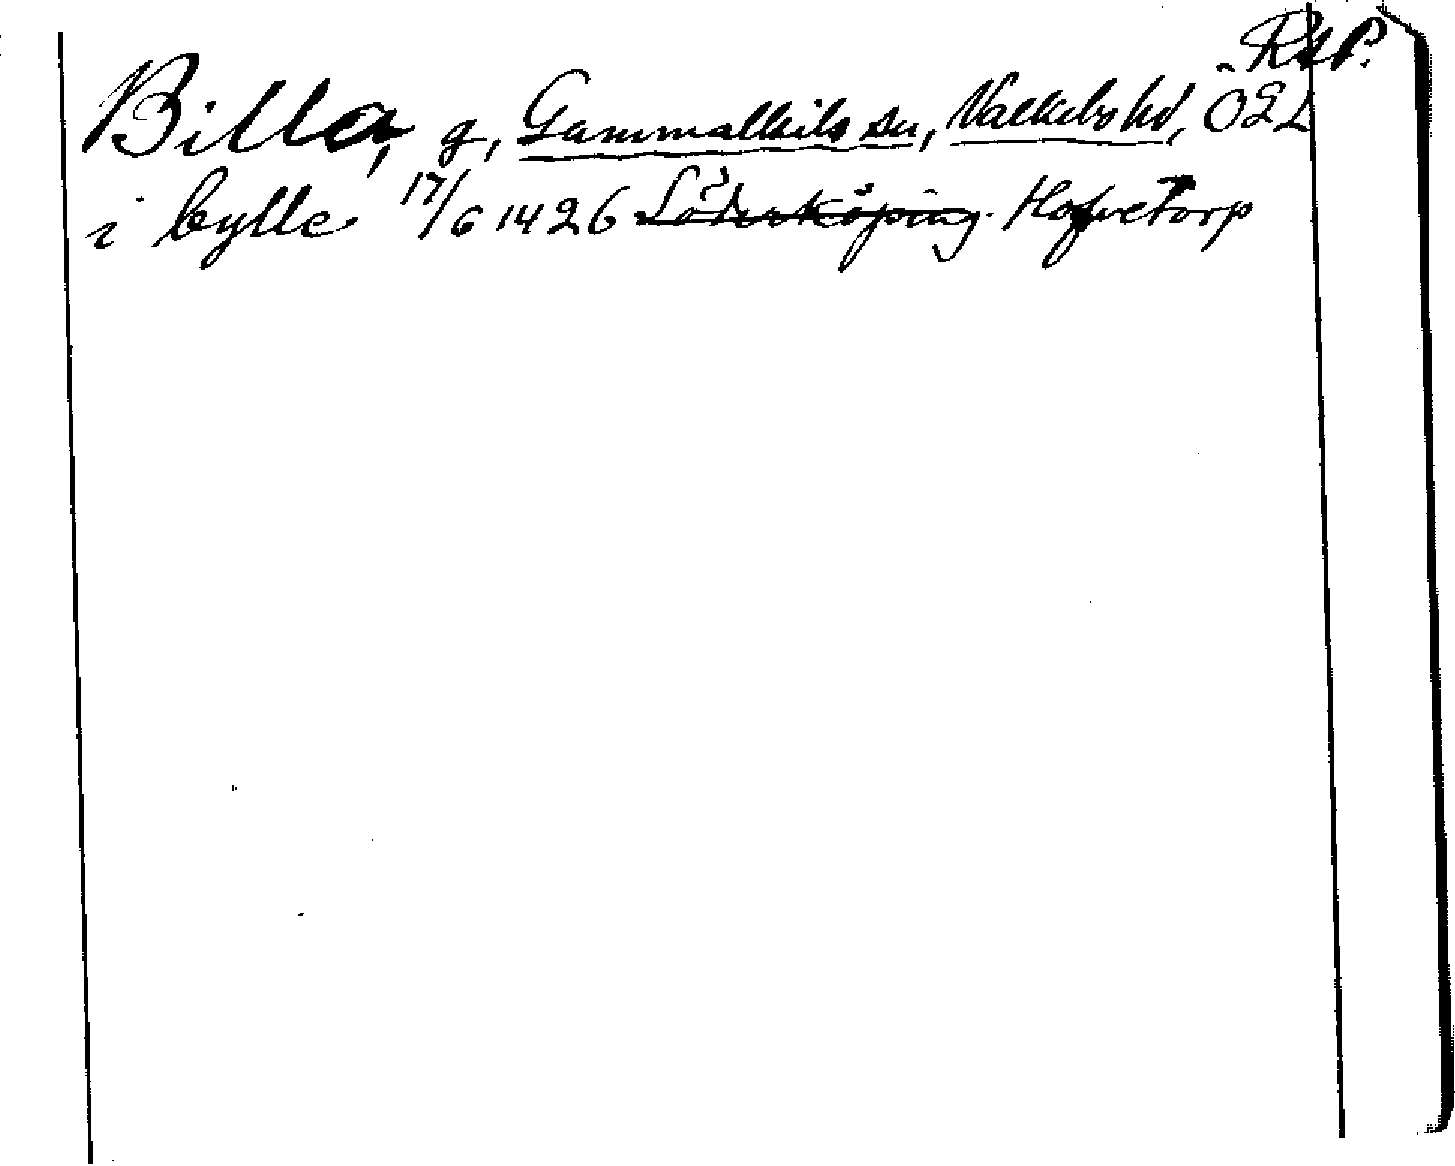 RAP.
Billa, g, Gammalkils sn, Valkebo hd, ÖGL
i bylle 17/6 1426 Söderköping. Hofvetorp